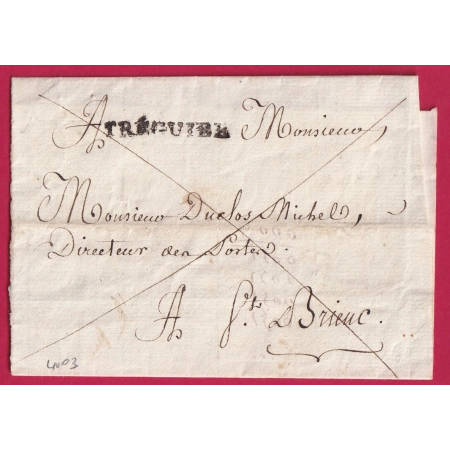 A TRÉGUIER Monsieur,
Monsieur Duclos Michel,
Directeur des Postes.
A St. Brieuc.
LN03